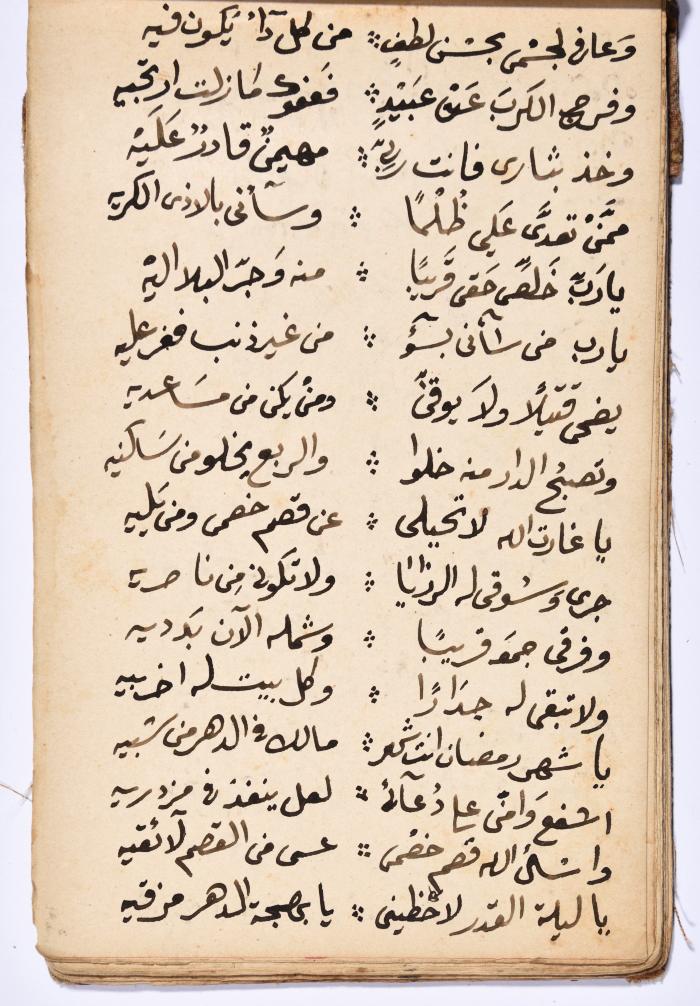 وَعافي لجسْمي بحسْن لطفٍ ؞ من كل دَآءٍ يَكون فيه
وفرج الكربَ عَنْ عبَيْدٍ ؞ فَعَفوك مَا زلت ارتجيه
وخذ بثارى فانت ربيّ ؞ مهيمنٌ قادرٌ عَلَيْه
ممَّنْ تعدَّى عَلَي ظُلْمًا ؞ وسآنى بالاذى الكريه
يارَبّ خَلصْ حَقى قَريبًا ؞ منه وَجرّ البلا اليْه
يارب من سآنى بسُوٓ ؞ من غير ذنب فغر عليه
يضحى قتيْلًا ولَا يوقىَّ ؞ ومنْ يكن من مسَاعديه
وتصبحُ الدار منه خلوا ؞ والربع يخلو من سَاكنيه
يا غارت الله لا تحيلى ؞ عن قصم خصمى ومن يَليه
جرى وَسُوقى له الرزَايَا ؞ ولا تكونى مِن ناصريه
وفرقى جمعَه قريبًا ؞ وشمله الآن بَدديه
ولا تبقى له جدَارًا ؞ وكل بيت له اخربيه
يا شهر رمضان انت شهر ؞ مالك في الدهر من شبيه
اشفع وَامّن على دُعَآئى ؞ لعل ينفذ في مزدريه
واسْأل الله قصم خصْمى ؞ عسى من القصم لا تقيه
يا ليلة القدر لاحظينى ؞ يا بهجة الدهر مزقيه